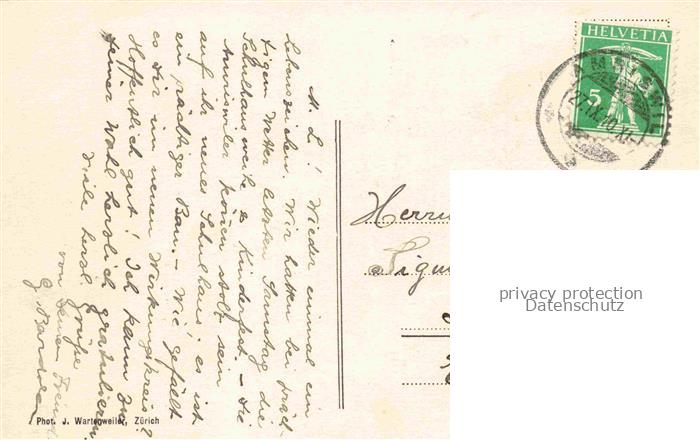 M. L.! Wieder einmal ein
Lebenszeichen. Wir hatten bei präch-
tigem Wetter letzten Samstag die
Schulhausweihe & Kinderfest. – Die
Amriswiler können stolz sein
auf ihr neues Schulhaus; es ist
ein prächtiger Bau. – Wie gefällt
es Dir im neuen Wirkungskreis?
Hoffentlich gut! Ich kann Zu
Deiner Wahl herzlich gratulieren.
Viele herzl. Grüße
von Deinem Freund
G.
Phot. J. Wartenweiler, Zürich
Herrn
HELVETIA
5
AMRISWIL
27.IX.10.XI
privacy protection
Datenschutz